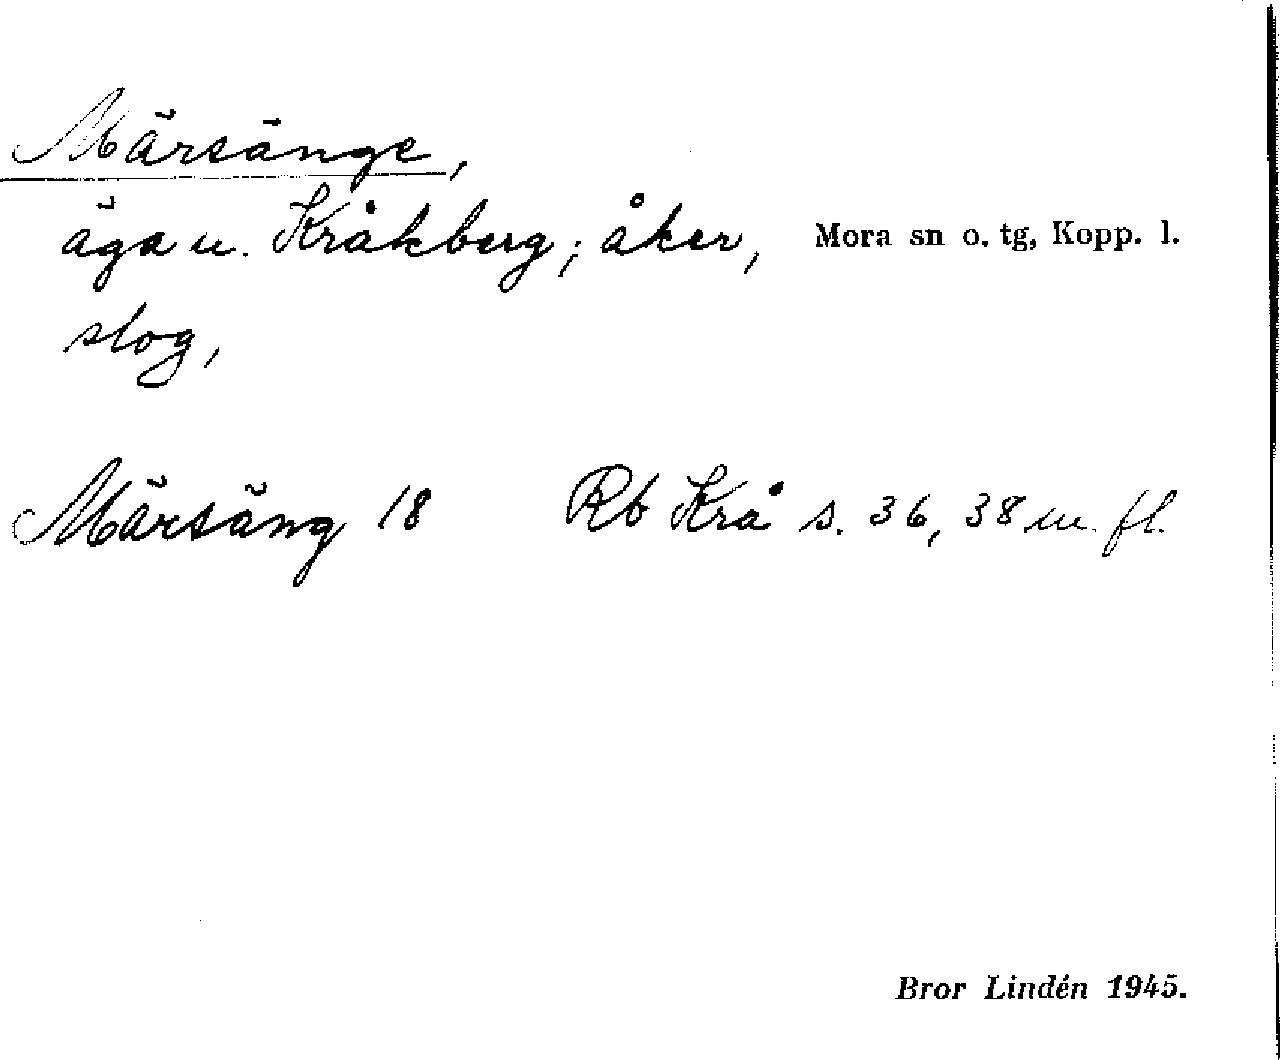 Märsänge,
äga u. Kråkberg; åker,
Mora sn o. tg, Kopp. l.
slog,
Märsäng 18 Rb Krå s. 36, 38 m. fl.
Bror Lindén 1945.